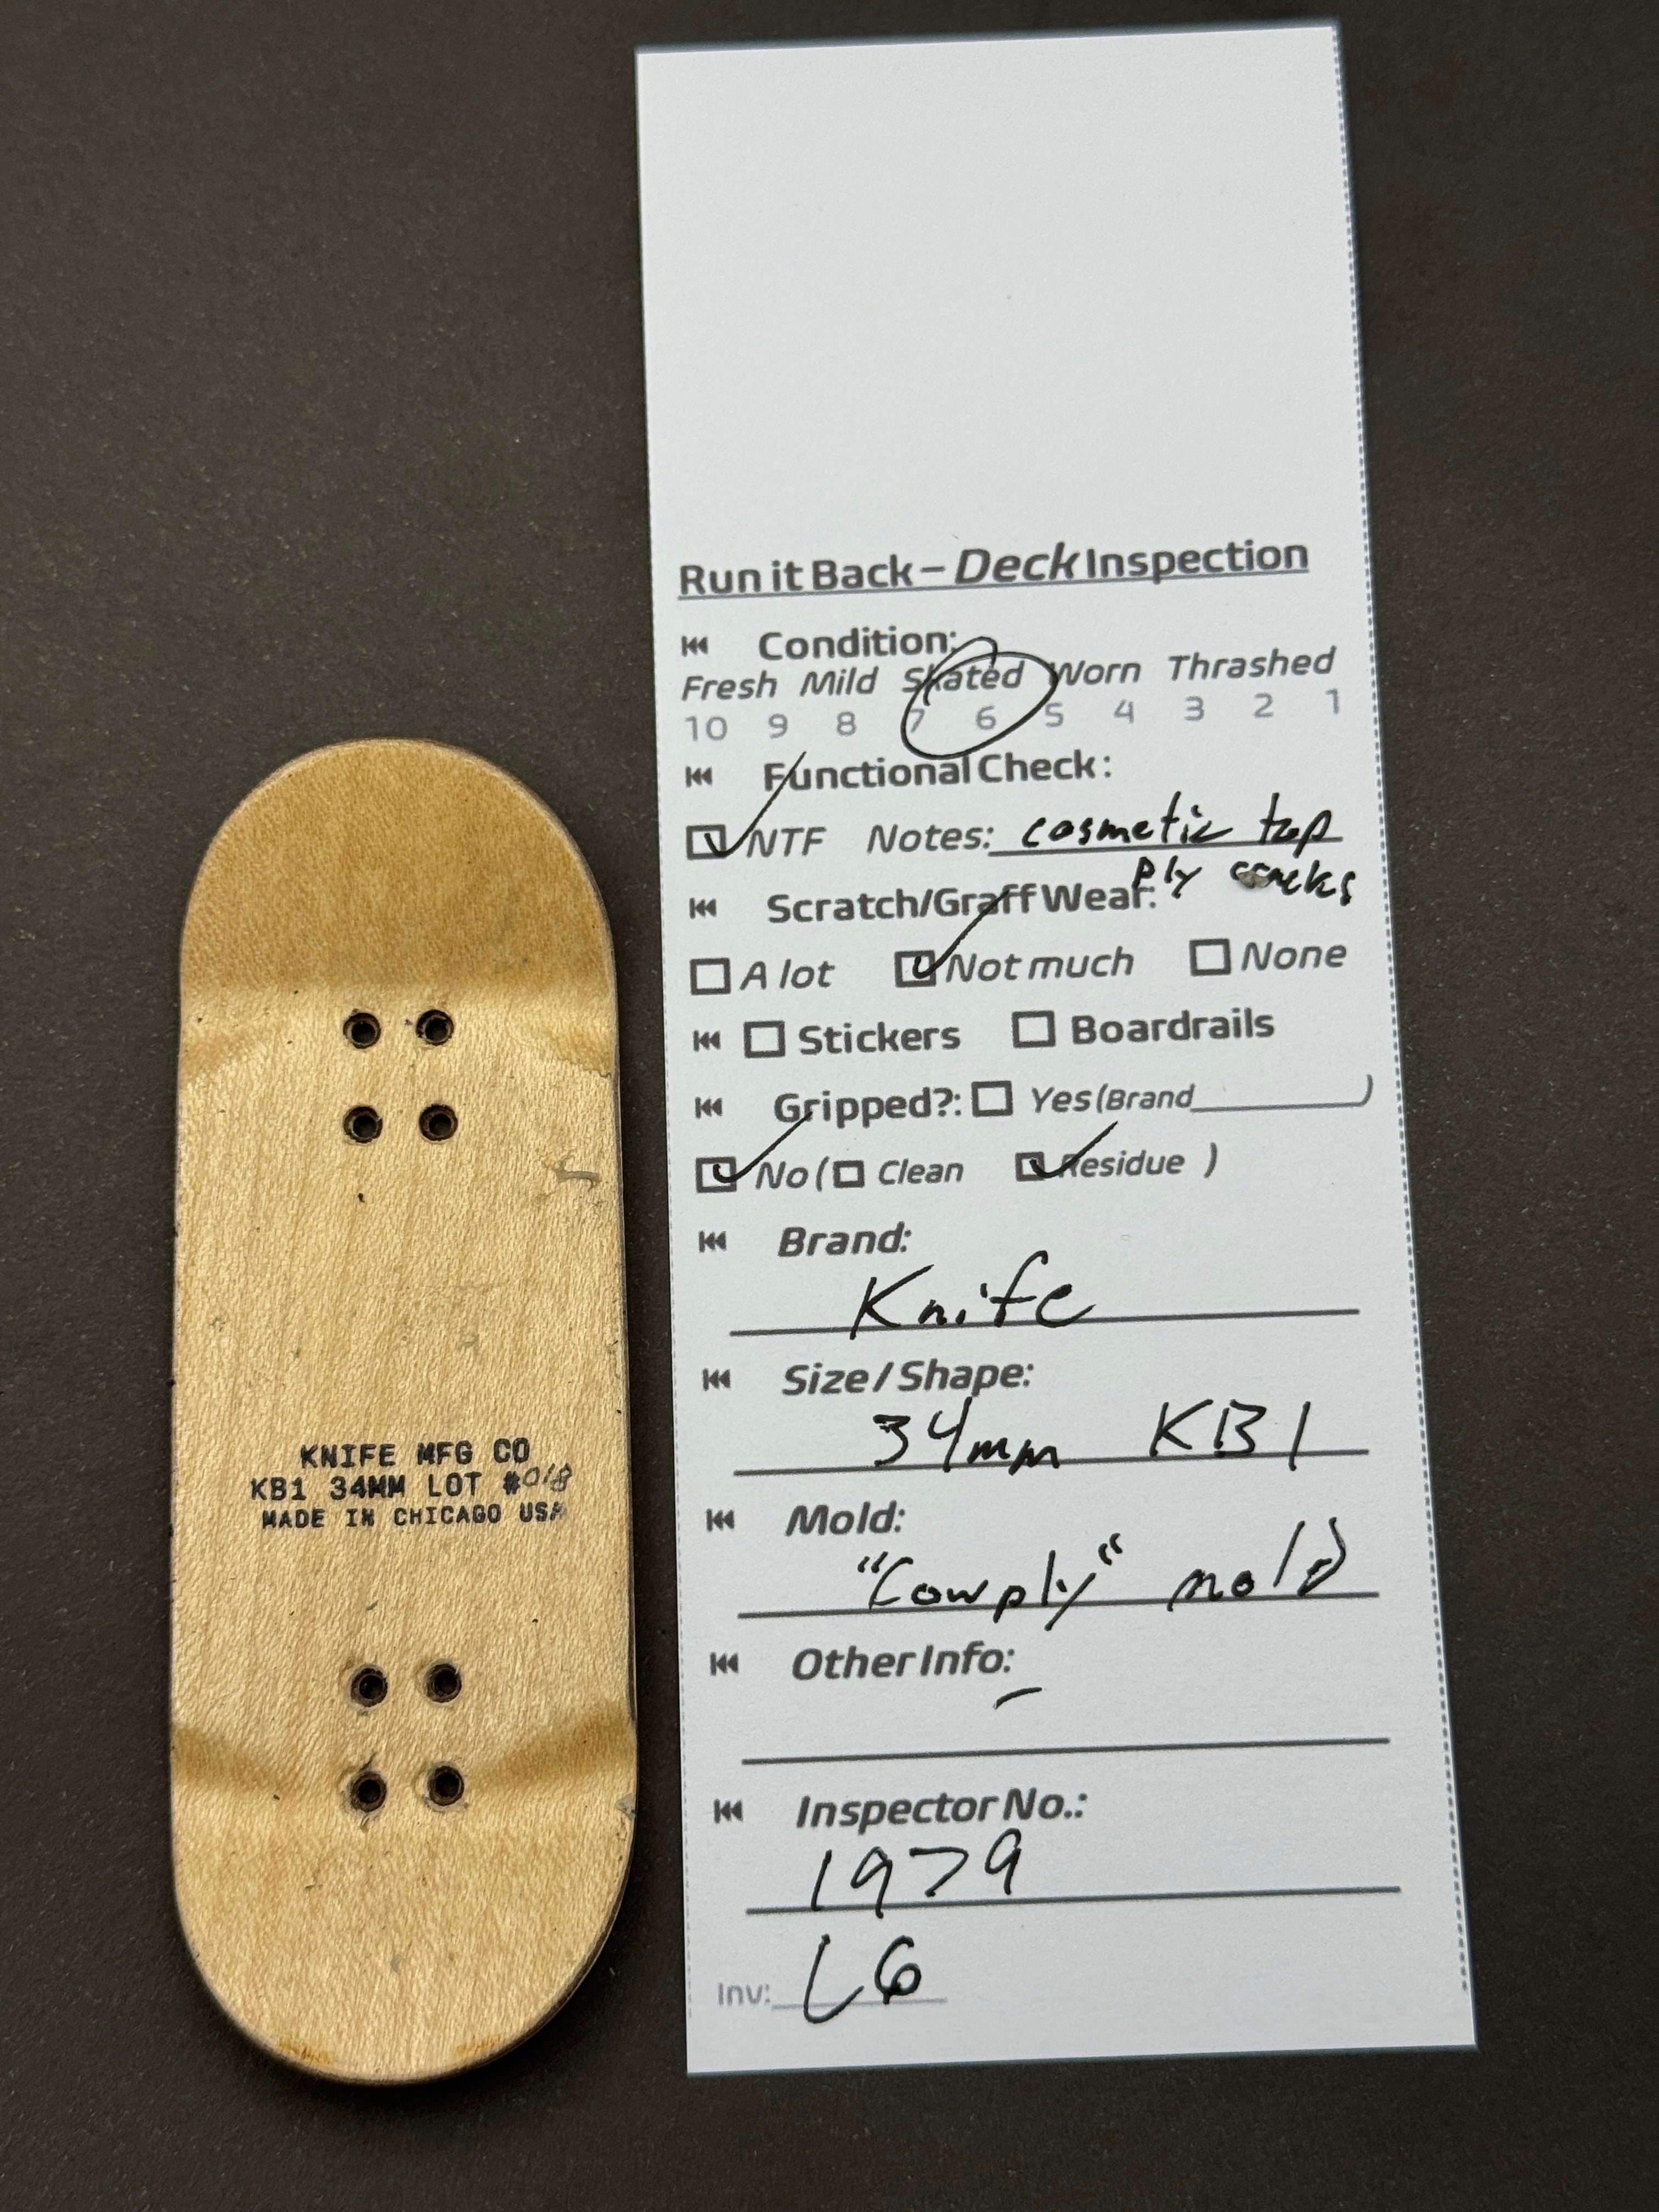 KNIFE MFG CO
KB1 34MM LOT #018
MADE IN CHICAGO USA
Run it Back – Deck Inspection
Condition:
Fresh Mild Skated Worn Thrashed
10 9 8 7 6 5 4 3 2 1
Functional Check:
NTF Notes: cosmetic top
ply cracks
Scratch/Graff Wear:
A lot Not much None
Stickers Boardrails
Gripped?: Yes (Brand________)
No ( Clean Residue )
Brand:
Knife
Size / Shape:
34mm KB1
Mold:
"Cowply" mold
Other Info:
Inspector No.:
1979
Inv: L6